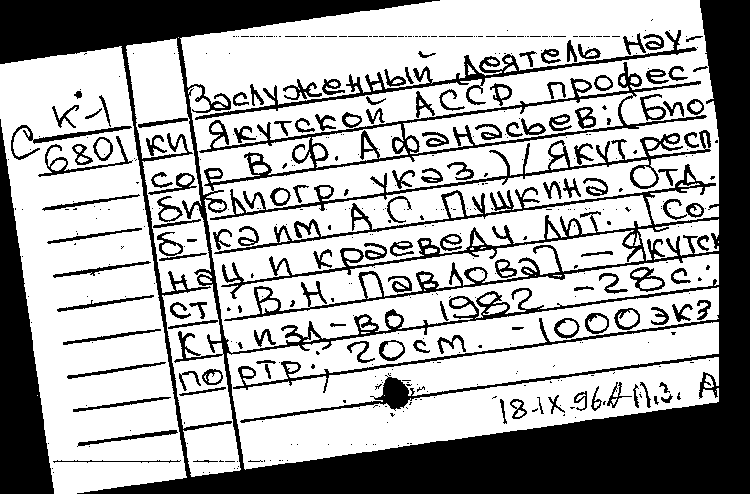 Заслуженный деятель нау-
К-1
С 6801
ки Якутской АССР, профес-
сор В.Ф. Афанасьев: (Био-
библиогр. указ.) / Якут. респ.
б-ка им. А.С. Пушкина. Отд.
нац. и краеведч. лит.; [Со-
ст.: В.Н. Павлова]. — Якутск
Кн. изд-во, 1982. - 28 с.:
портр.; 20 см. - 1000 экз.
18-IX-96.